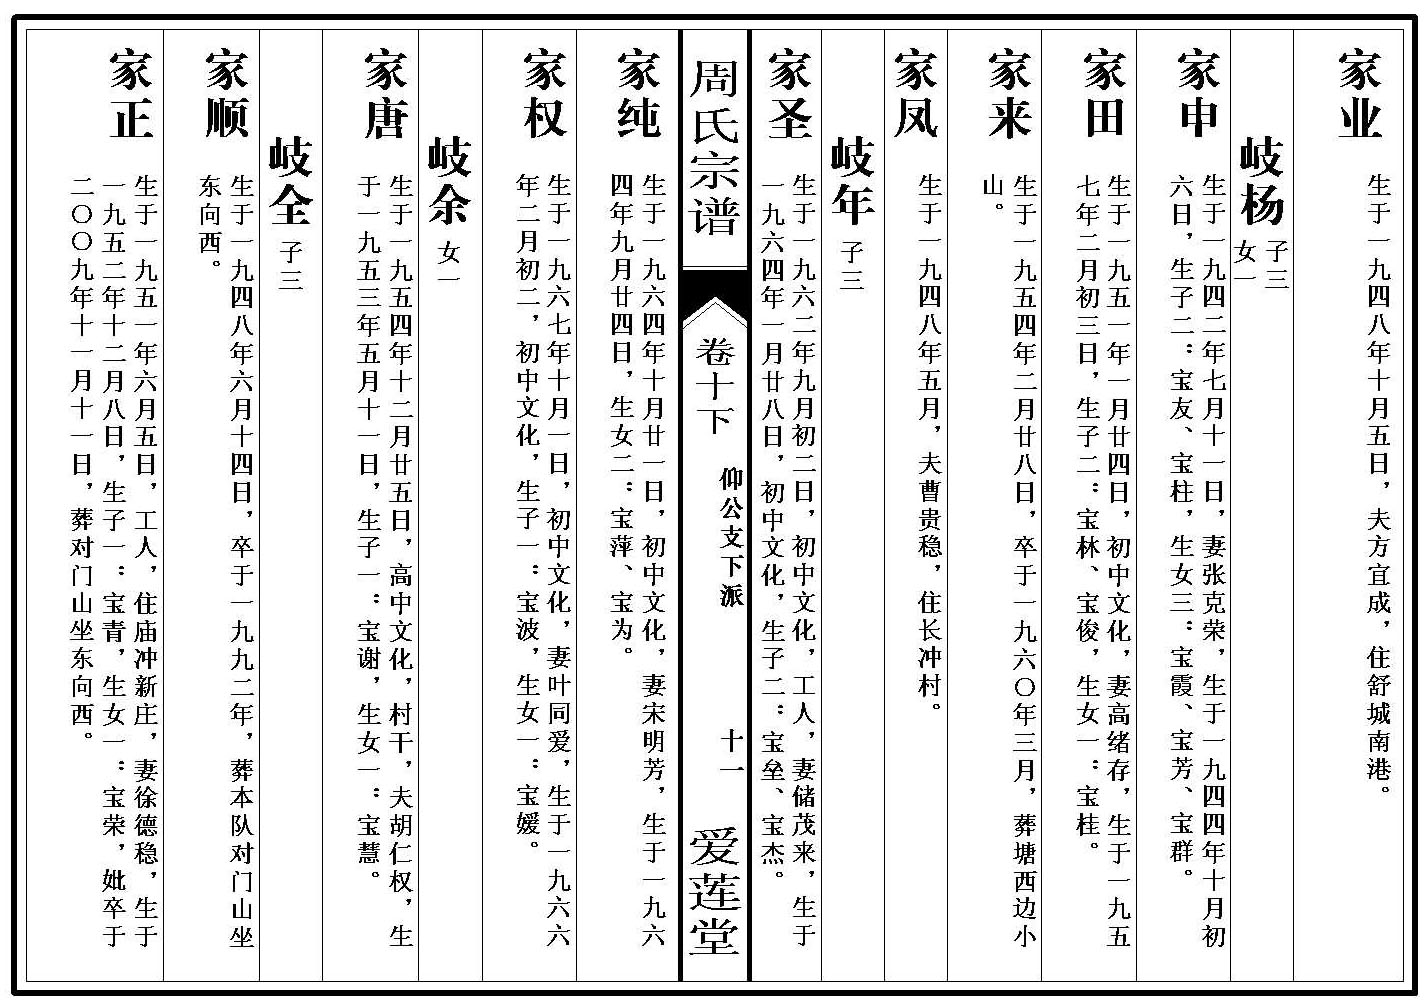 家业
生于一九四八年十月五日，夫方宜成，住舒城南港。
岐杨
子三
女一
家申
生于一九四二年七月十一日，妻张克荣，生于一九四四年十月初
六日，生子二：宝友、宝柱，生女三：宝霞、宝芳、宝群。
家田
生于一九五一年一月廿四日，初中文化，妻高绪存，生于一九五
七年二月初三日，生子二：宝林、宝俊，生女一：宝桂。
家来
生于一九五四年二月廿八日，卒于一九六〇年三月，葬塘西边小
山。
家凤
生于一九四八年五月，夫曹贵稳，住长冲村。
岐年
子三
家圣
生于一九六二年九月初二日，初中文化，工人，妻储茂来，生于
一九六四年一月廿八日，初中文化，生子二：宝垒、宝杰。
周氏宗谱
卷十下
仰公支下派
十一
爱莲堂
家纯
生于一九六四年十月廿一日，初中文化，妻宋明芳，生于一九六
四年九月廿四日，生女二：宝萍、宝为。
家权
生于一九六七年十月一日，初中文化，妻叶同爱，生于一九六六
年二月初二，初中文化，生子一：宝波，生女一：宝媛。
岐余
女一
家唐
生于一九五四年十二月廿五日，高中文化，村干，夫胡仁权，生
于一九五三年五月十一日，生子一：宝谢，生女一：宝慧。
岐全
子三
家顺
生于一九四八年六月十四日，卒于一九九二年，葬本队对门山坐
东向西。
家正
生于一九五一年六月五日，工人，住庙冲新庄，妻徐德稳，生于
一九五二年十二月八日，生子一：宝青，生女一：宝荣，妣卒于
二〇〇九年十一月十一日，葬对门山坐东向西。